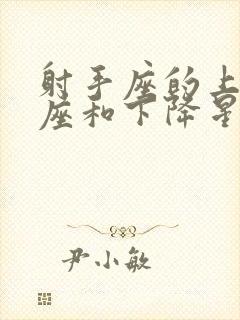 射手座的上
座和下降星
尹小敏